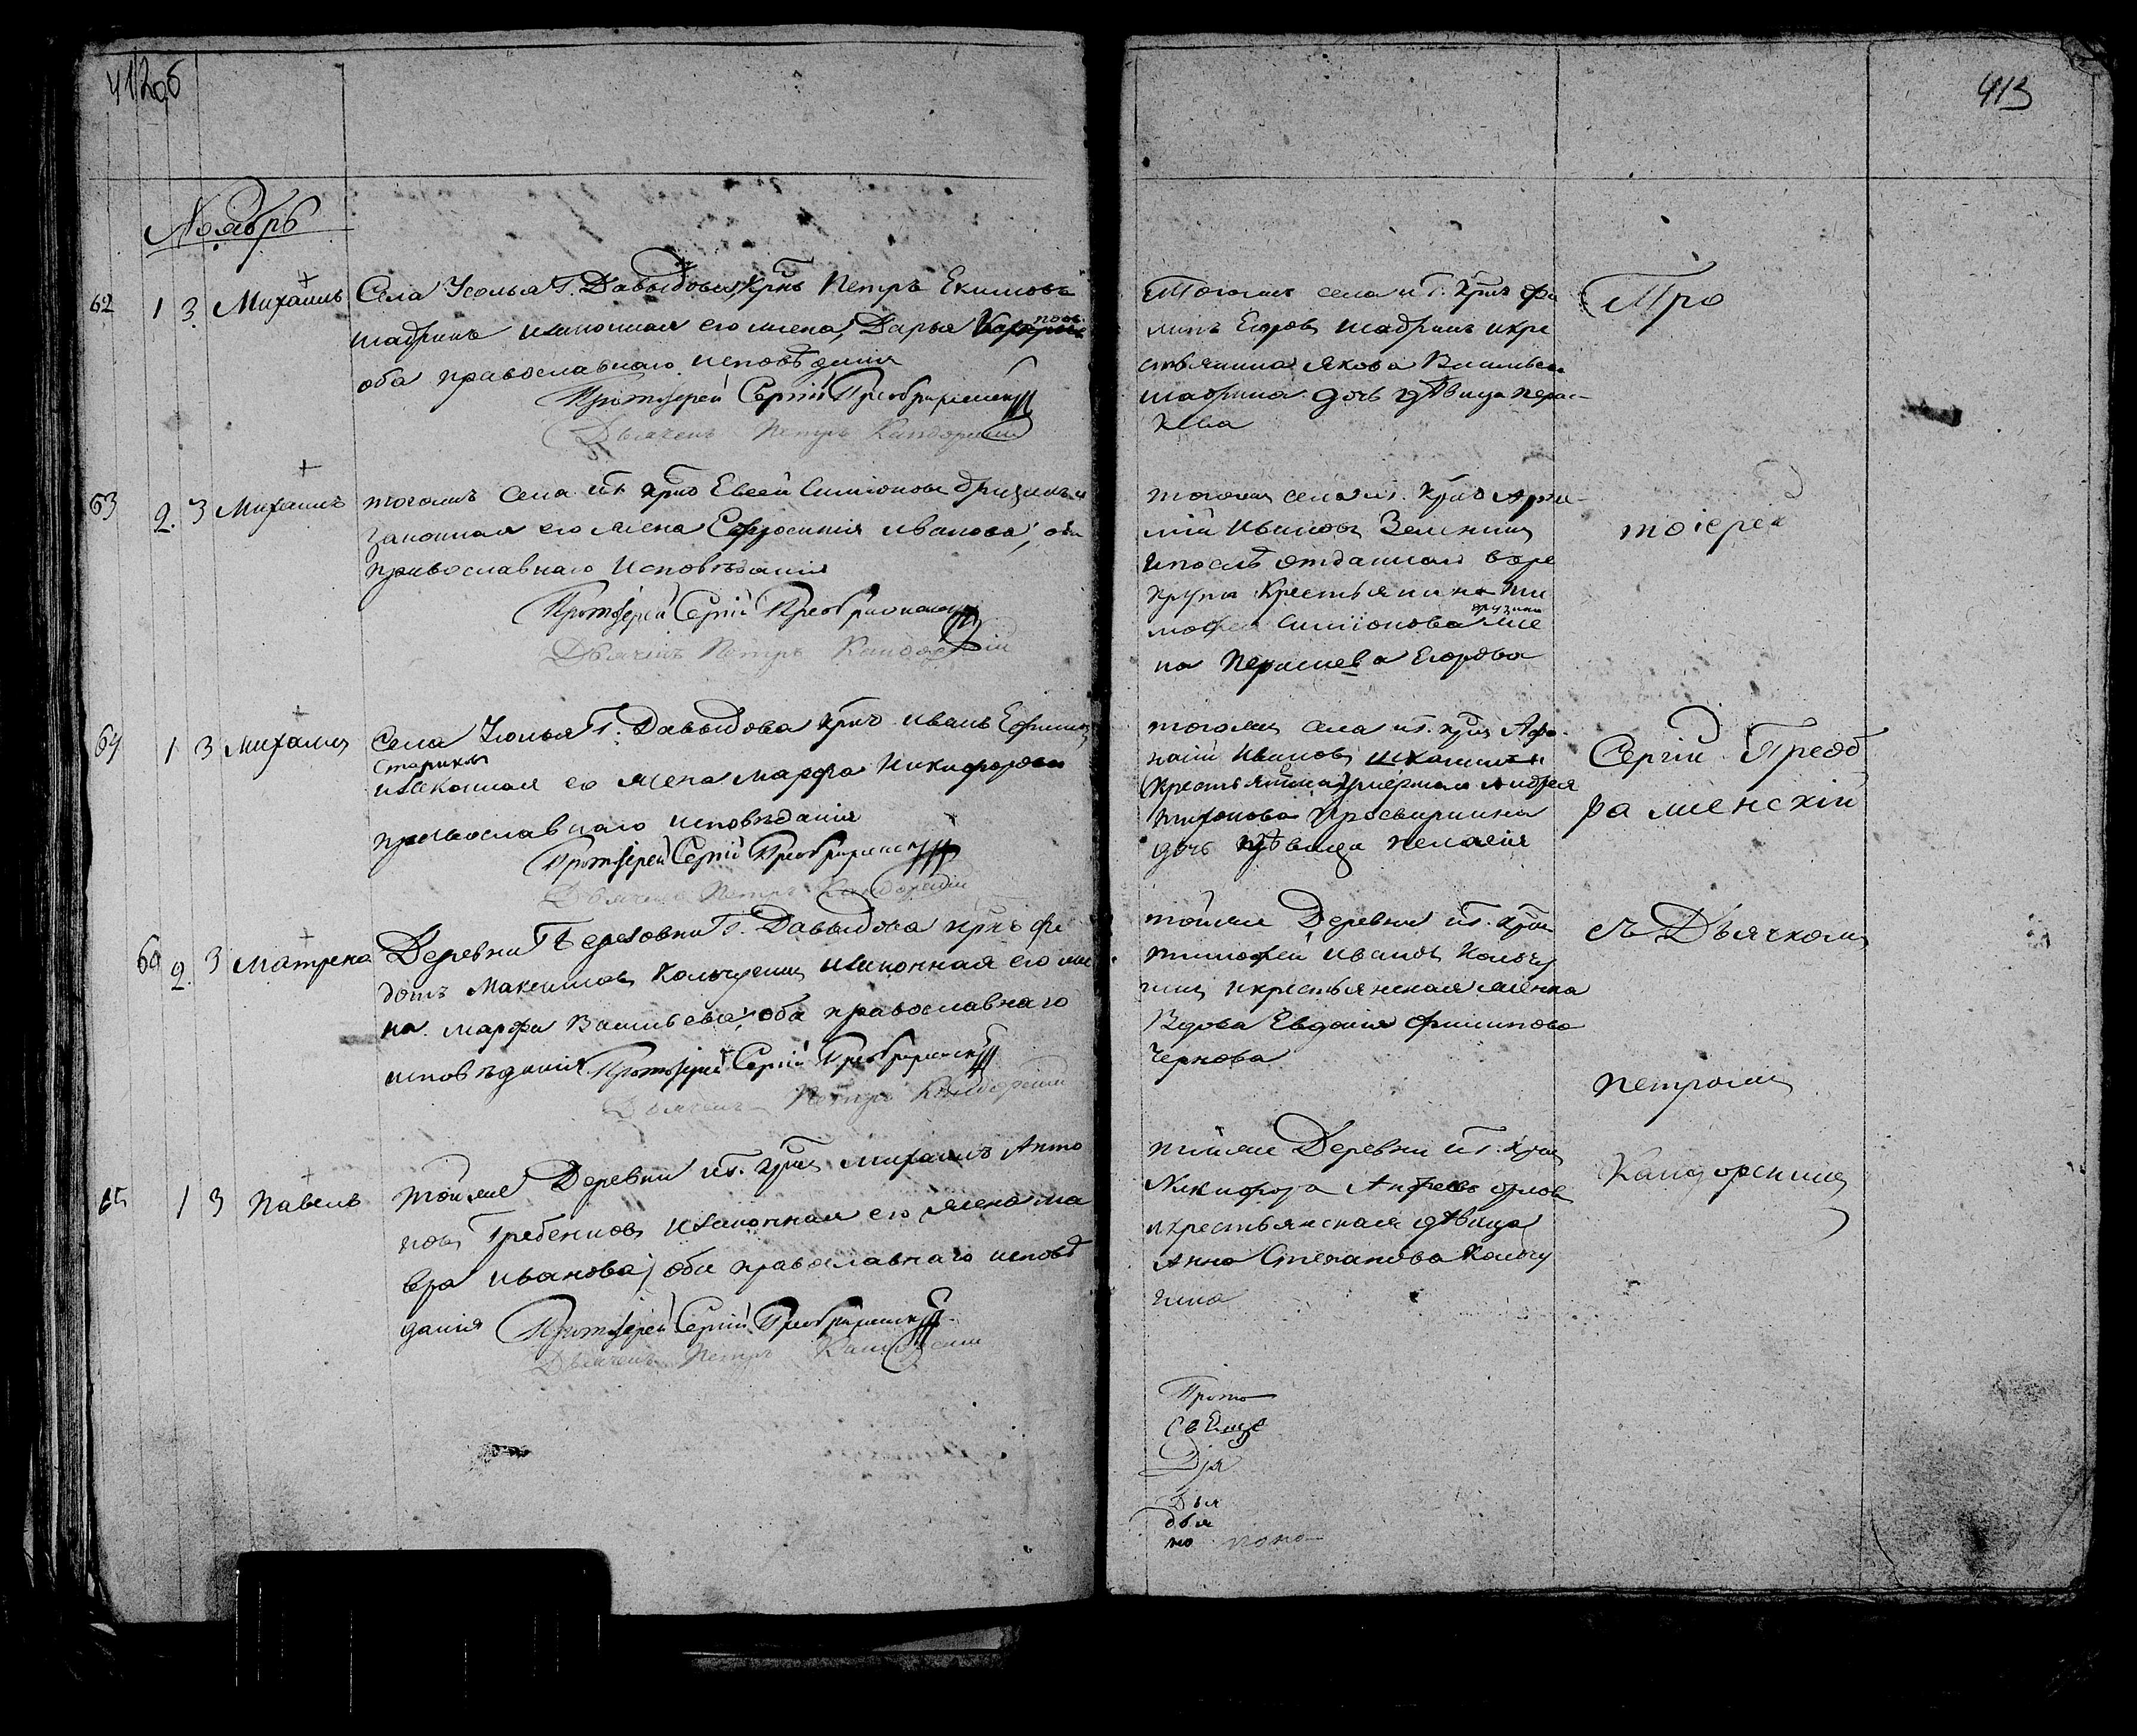 412об
Ноябрь
62 1 3 Михаилъ Села Усолья Г. Давыдова Крнъ Петръ Екимовъ
Шадринъ и законная его жена Дарья
оба православнаго исповѣданія
Протоіерей Сергій Преображенскій
Дьячекъ Петръ Кандорскій
63 2. 3 Михаилъ тогожъ села и Г. крнъ Евсей Симіоновъ
законная его жена Ефросинія Иванова, оба
православнаго исповѣданія
Протоіерей Сергій Преображенскій
Дьячекъ Петръ Кандорскій
64 1 3 Михаилъ Села Усолья Г. Давыдова крнъ Иванъ Ефимовъ
Стариковъ
и законная его жена Марфа Никифорова
православнаго исповѣданія
Протоіерей Сергій Преображенскій
Дьячекъ Петръ Кандорскій
60 2. 3 Матрена Деревни Березовки Г. Давыдова крнъ Фе
дотъ Максимовъ Кольчугинъ и законная его же
на Марфа Васильева, оба православнаго
исповѣданія Протоіерей Сергій Преображенскій
Дьячекъ Петръ Кандорскій
65 1 3 Павелъ тойже Деревни и Г. крнъ Михаилъ Анто
новъ Гребенновъ и законная его жена Ма
вра Иванова, оба православнаго исповѣ
данія Протоіерей Сергій Преображенскій
Дьячекъ Петръ Кандорскій
413
Тогожъ села и Г. крнъ Фи
липъ Егоровъ Шадринъ и кре
стьянина Якова Васильева
Шадрина дочь дѣвица Парас-
кева
тогожъ села и Г. крнъ Арте-
мій Ивановъ Зеленинъ
и послѣ отданнаго въ ре
круты крестьянина Ти
мофея Симіонова же
на Параскева Егорова
тогожъ села и Г. крнъ Афа-
насій Ивановъ
крестьянина умершаго Андрея
Тихонова Просвирнина
дочь дѣвица Пелагія
тойже Деревни и Г. крнъ
Тимофей Ивановъ Кольчу
гинъ и крестьянская женка
вдова Евдокия Филипова
Чернова
тойже Деревни и Г. крнъ
Никифора Андреевъ Орловъ
и крестьянская дѣвица
Анна Степанова Кольчу
гина
Прото
Свяще
Дья
дья
по поно
Про
тоіерей
Сергій Преоб
раженскій
съ Дьячкомъ
Петромъ
Кандорскимъ